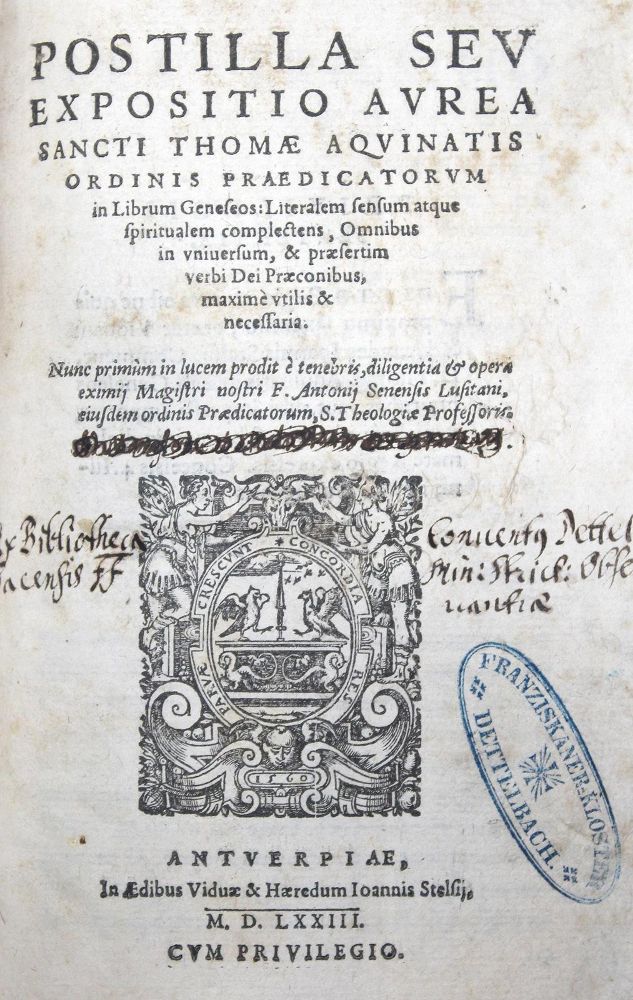 POSTILLA SEV
EXPOSITIO AVREA
SANCTI THOMÆ AQVINATIS
ORDINIS PRAEDICATORVM
in Librum Geneſeos: Literalem ſenſum atque
ſpiritualem complectens, Omnibus
in vniuerſum, & præſertim
verbi Dei Præconibus,
maximè vtilis &
neceſſaria.
Nunc primùm in lucem prodit è tenebris, diligentia & opera
eximij Magiſtri noſtri F. Antonij Senenſis Luſitani,
eiuſdem ordinis Prædicatorum, S. Theologiæ Profeſſoris.
CONCORDIA RES PARVÆ CRESCVNT
1560
Bibliotheca
acensis FF
Conventꝰ Dettel
Min: Strict: Obse
rvantiæ
FRANZISKANER-KLOSTER
DETTELBACH.
ANTVERPIAE,
In Ædibus Viduæ & Hæredum Ioannis Stelſij,
M. D. LXXIII.
CVM PRIVILEGIO.